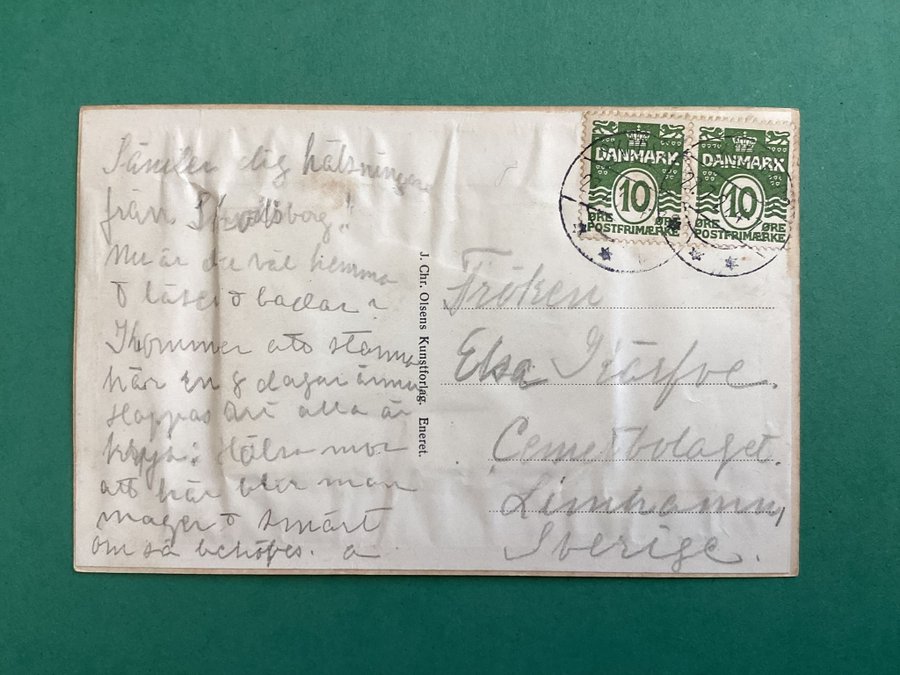 Sänder dig hälsningar
från "Skodsborg"
Nu är du väl hemma
& läser & badar?
Kommer att stanna
här en 8 dagar ännu
Hoppas att alla är
krya. Hälsa mor
att här blir man
mager & smärt
om så behöfves. a
J. Chr. Olsens Kunstforlag. Eneret.
DANMARK
10
ØRE ØRE
POSTFRIMÆRKE
DANMARK
10
ØRE ØRE
POSTFRIMÆRKE
Fröken
Elsa
Cementbolaget.
Limhamn,
Sverige.